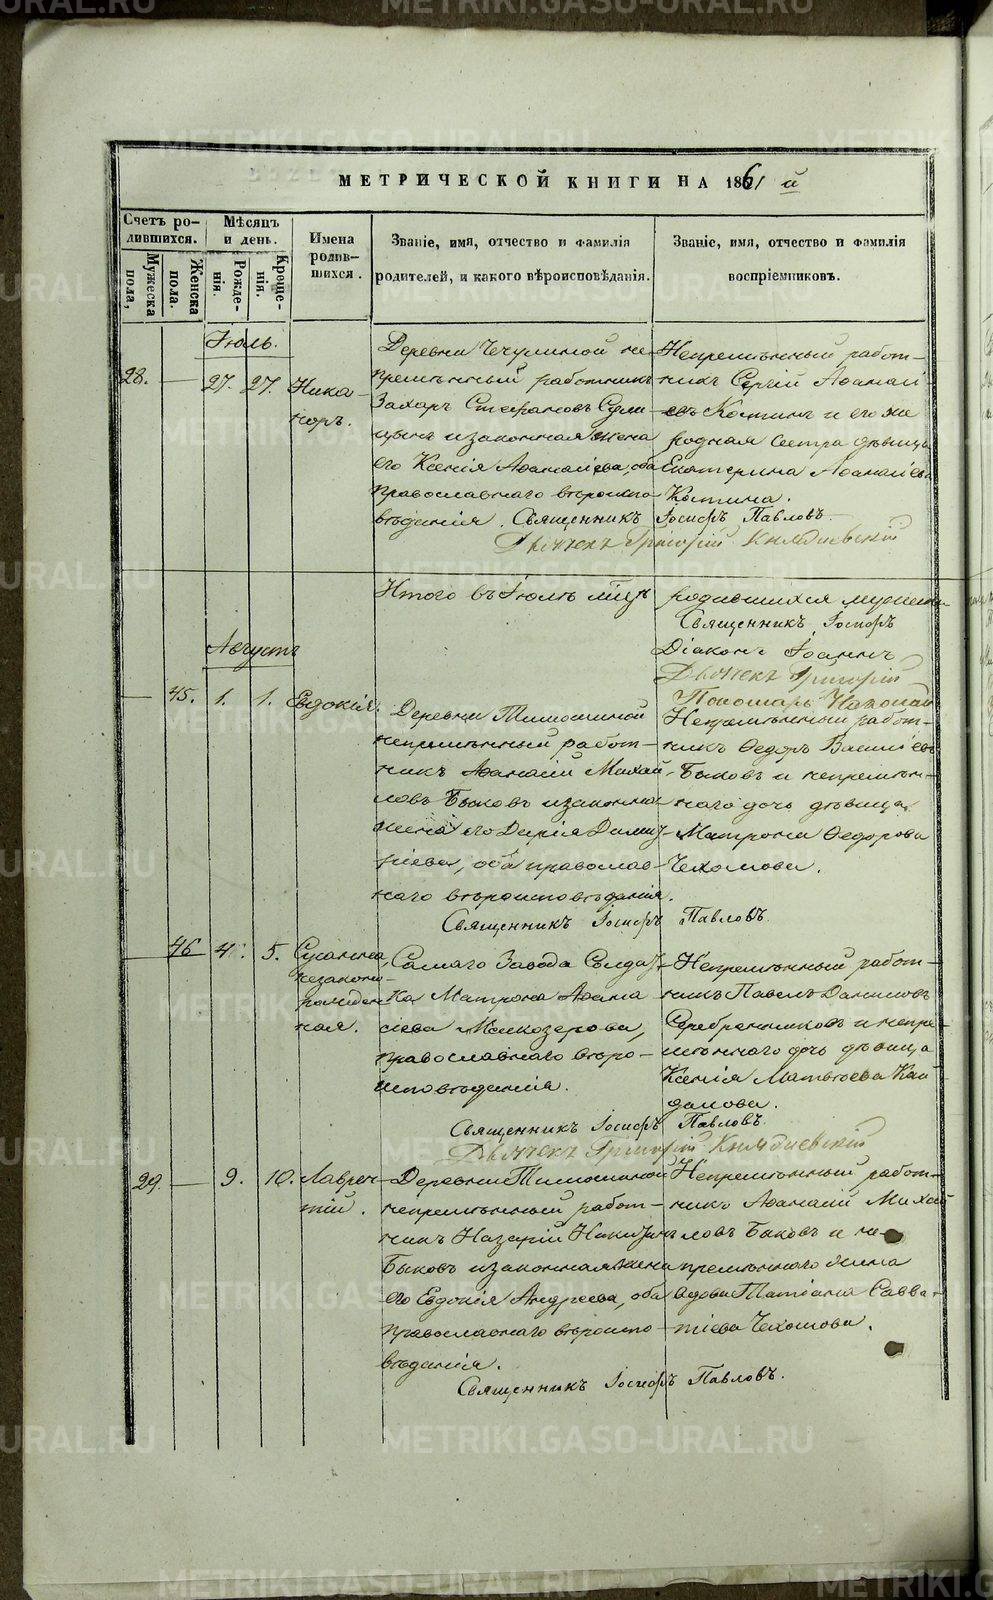 METRIKI.GASO-URAL.RU
МЕТРИЧЕСКОЙ КНИГИ НА 1861 й
Счетъ родившихся.
Мужеска пола,
Женска пола.
Мѣсяцъ и день.
Рожденія.
Крещенія.
Имена родившихся.
Званіе, имя, отчество и фамилія
родителей, и какого вѣроисповѣданія.
Званіе, имя, отчество и фамилія
воспріемниковъ.
Іюль.
28. — 27. 27.
Ника-
норъ.
Деревни Чечулиной не-
премѣнный работникъ
Захаръ Стефановъ
и законная жена
его Ксенія Аѳанасіева, оба
православнаго вѣроиспо-
вѣданія.
Непремѣнный работ-
никъ Сергій Аѳанасі-
евъ Костинъ и его же
родная сестра дѣвица
Екатерина Аѳанасіева
Костина.
Священникъ Іосифъ Павловъ.
Дьячекъ Григорій Княдиевскій
Итого въ Іюлѣ мцѣ родившихся мужеска
Священникъ Іосифъ
Діаконъ Іоаннъ
Дьячекъ Григорій
Пономарь
Августъ
— 45. 1. 1. Евдокія.
Деревни Тимошиной
непремѣнный работ-
никъ Аѳанасій Михай-
ловъ Быковъ и законная
жена его Дарія Димит-
ріева, оба православ-
наго вѣроисповѣданія.
Непремѣнный работ-
никъ Ѳедоръ Василіевъ
Быковъ и непремѣн-
наго дочь дѣвица
Матрона Ѳедорова
Чехомова.
Священникъ Іосифъ Павловъ.
46 4. 5.
Сусанна,
незаконно
рожден-
ная.
Самаго Завода Солдат-
ка Матрона Аѳана-
сіева Мякозерова,
православнаго вѣро-
исповѣданія.
Непремѣнный работ-
никъ Павелъ Даниловъ
Серебренниковъ и непре-
мѣннаго дочь дѣвица
Ксенія Матвѣева Кай-
далова.
Священникъ Іосифъ Павловъ.
Дьячекъ Григорій Княдиевскій
29. — 9. 10.
Лаврен-
тій.
Деревни Тимошиной
непремѣнный работ-
никъ Назарій Никитинъ
Быковъ и законная жена
его Евдокія Андреева, оба
православнаго вѣроиспо-
вѣданія.
Непремѣнный работ-
никъ Аѳанасій Михай-
ловъ Быковъ и не-
премѣннаго жена
вдова Татіана Савва-
тіева Чехомова.
Священникъ Іосифъ Павловъ.